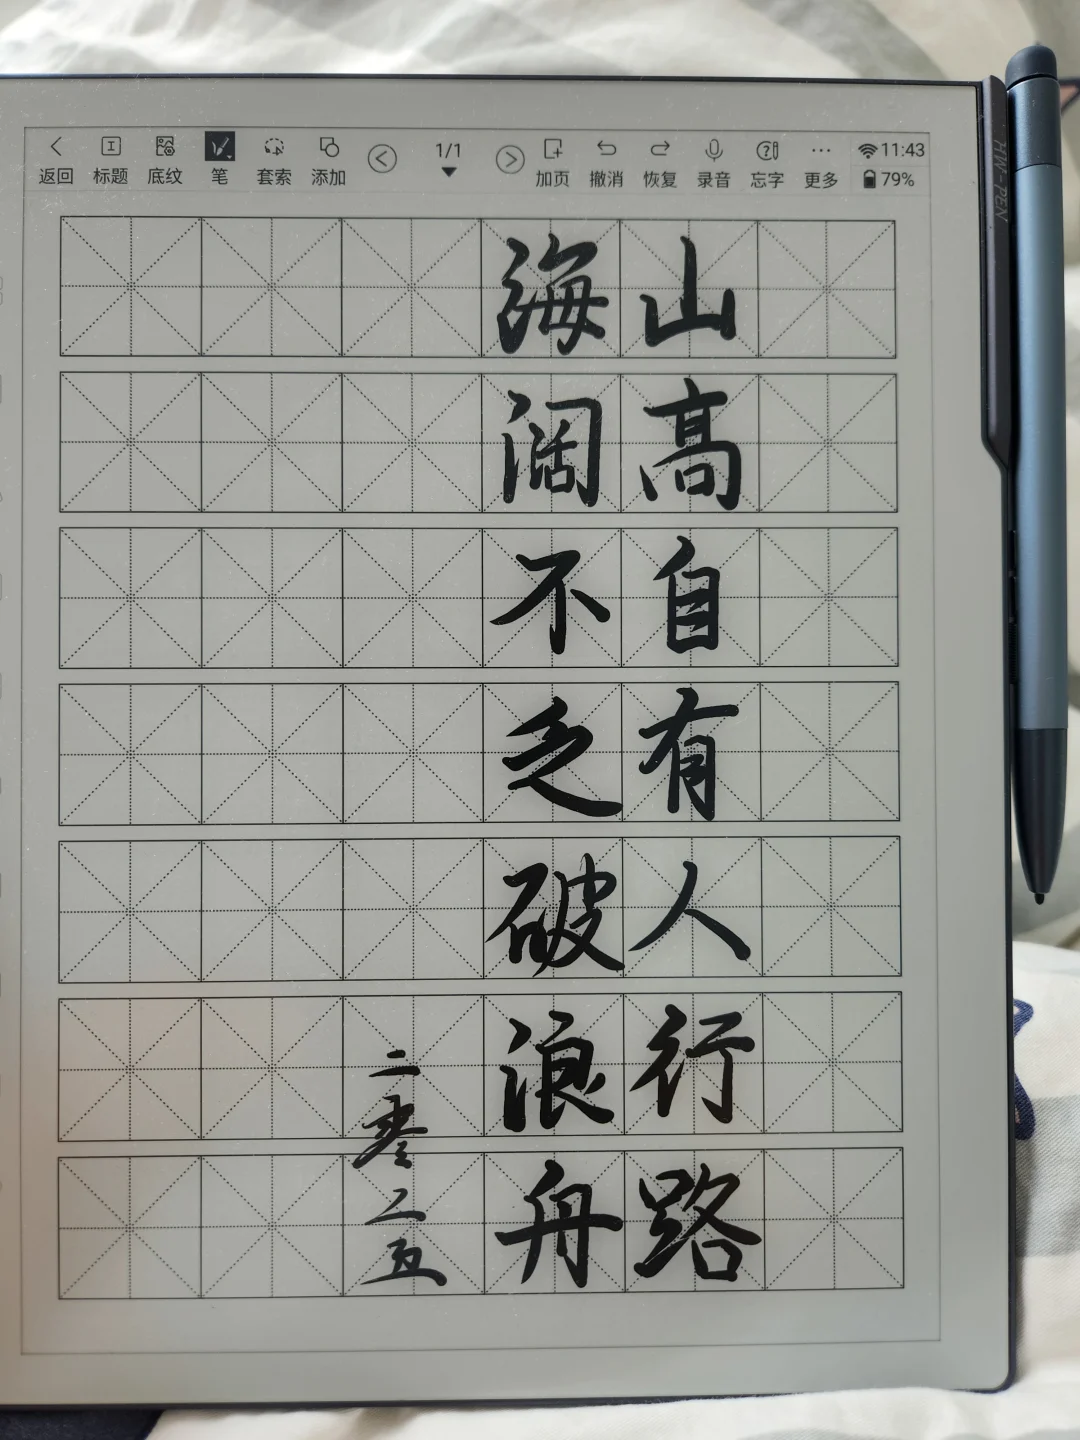 返回 标题 底纹 笔 套索 添加 1/1 加页 撤消 恢复 录音 忘字 更多 11:43 79%
山高自有人行路
海阔不乏破浪舟
二零二五
HW-PEN